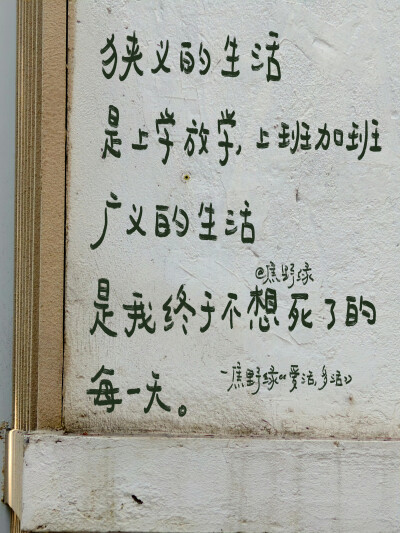 狭义的生活
是上学放学，上班加班
广义的生活
@焦野绿
是我终于不想死了的
每一天。
—焦野绿《爱活，多活》